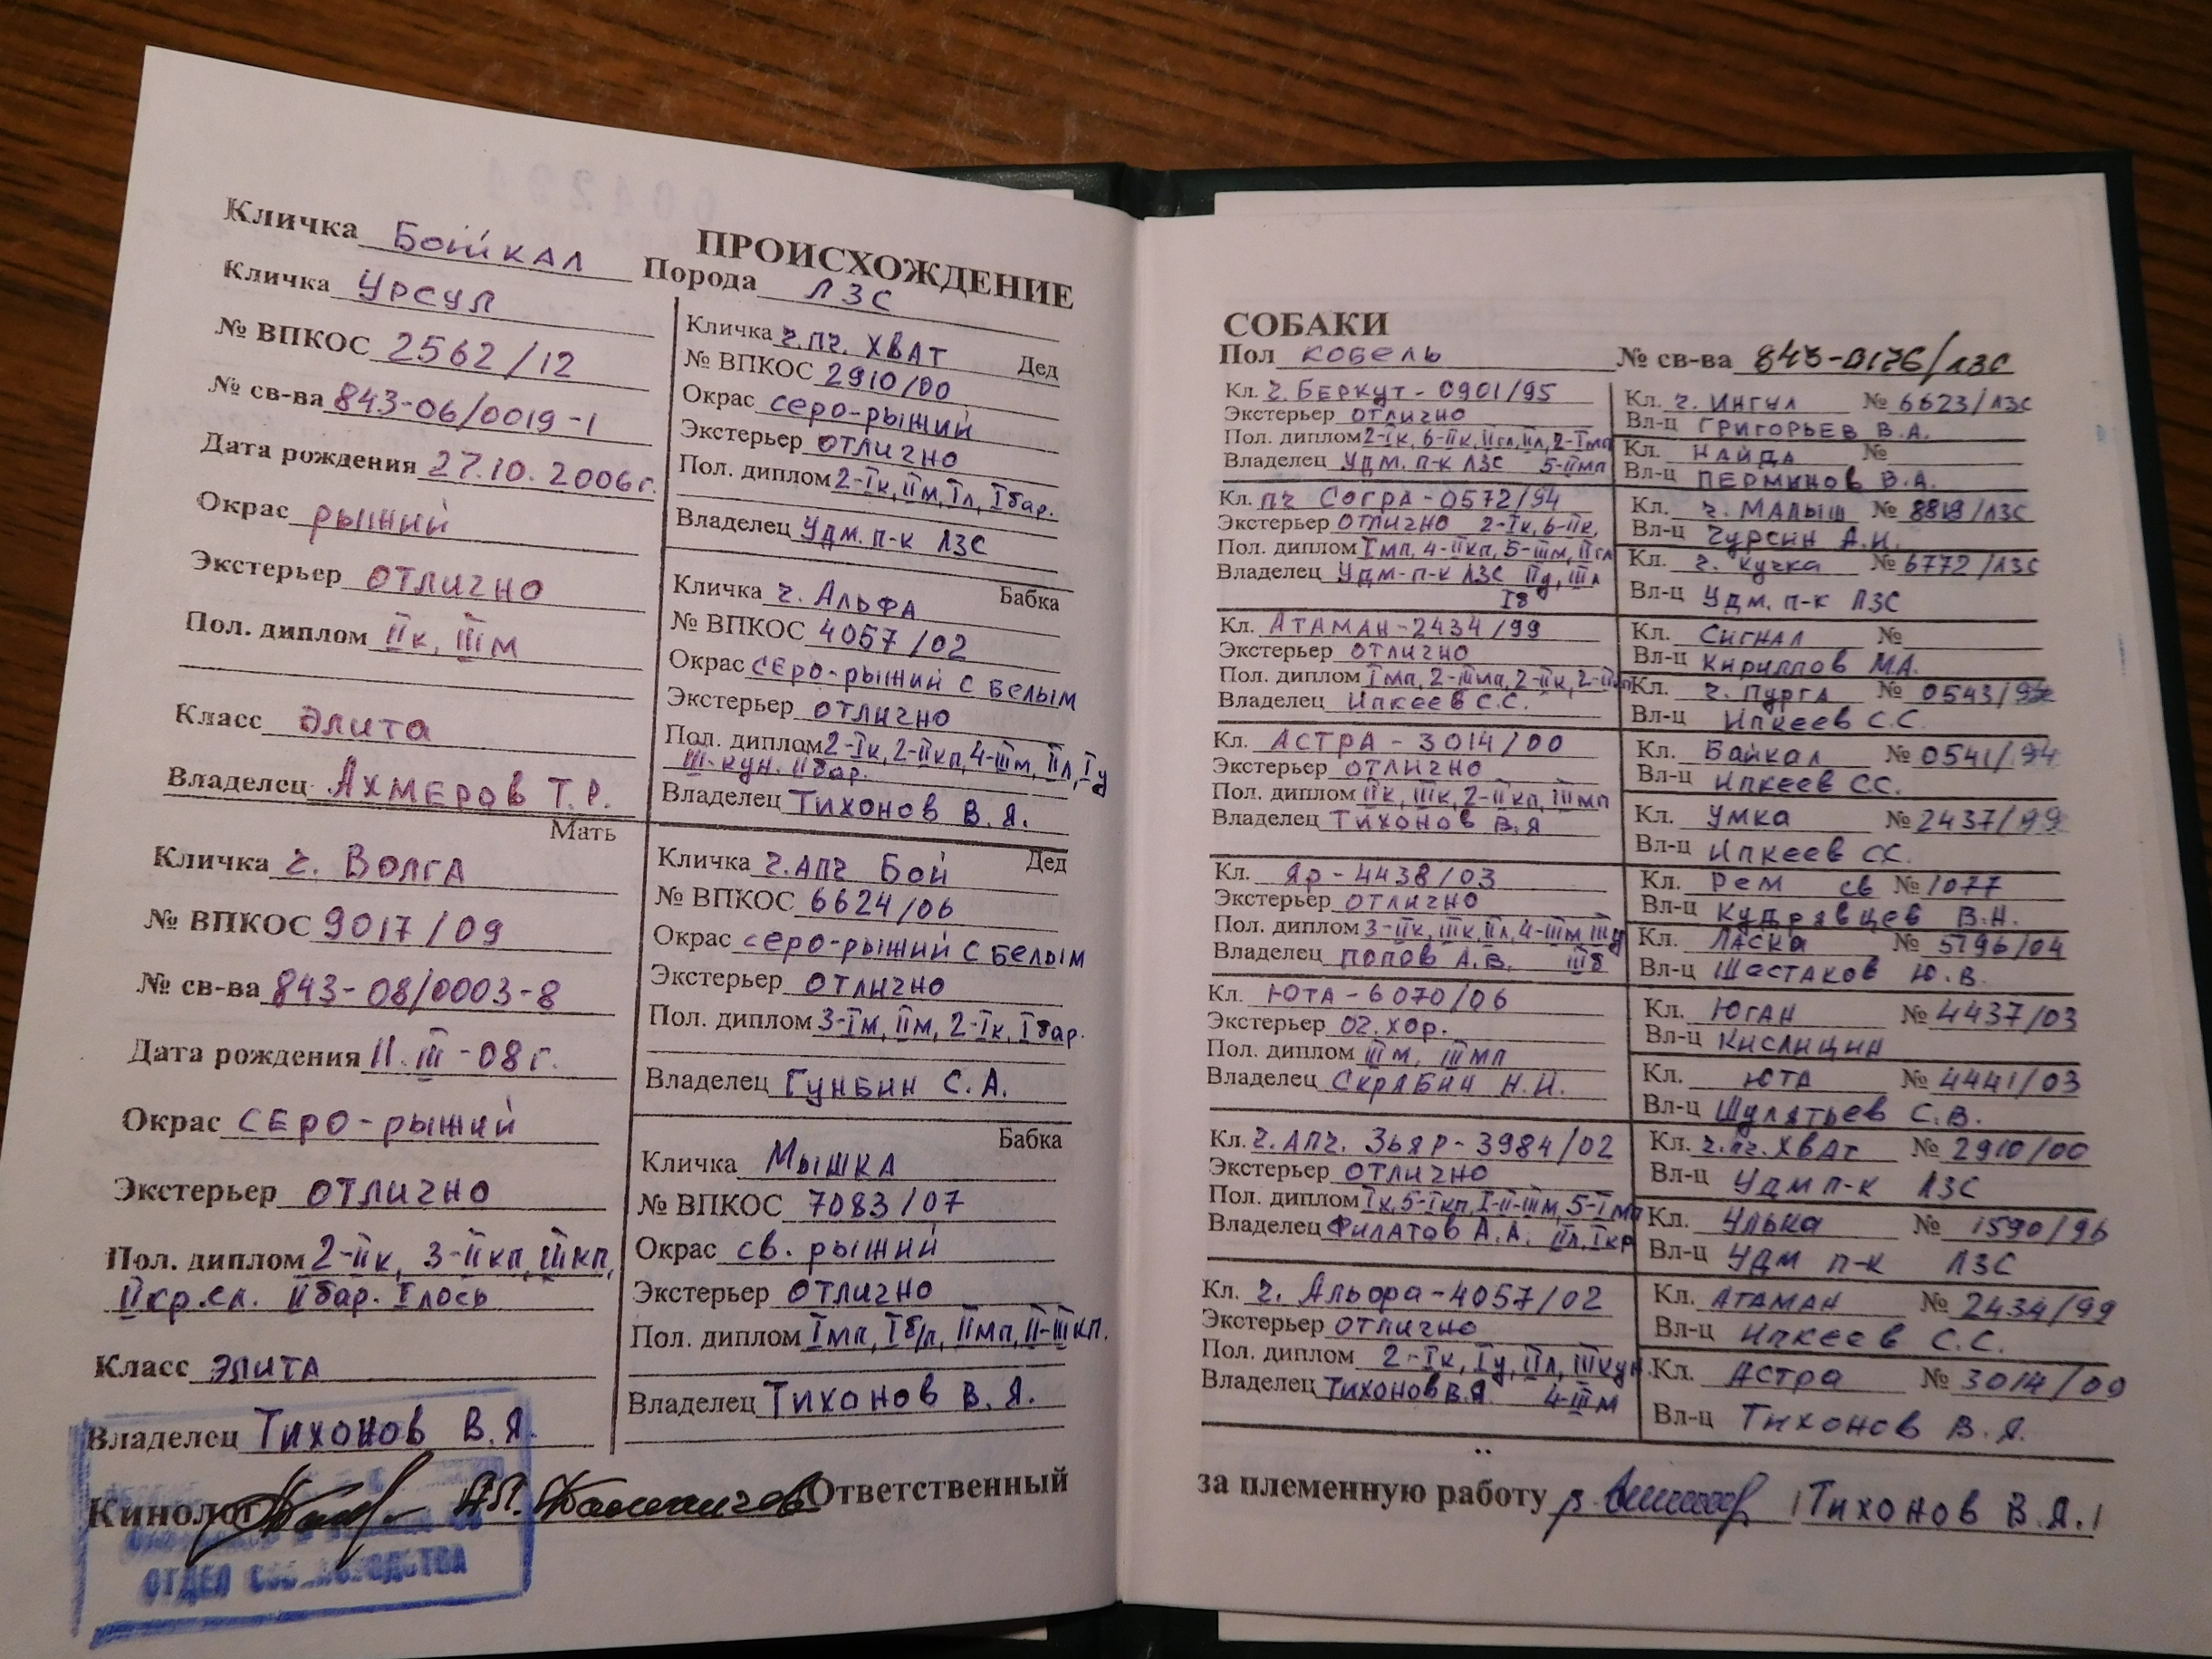 ПРОИСХОЖДЕНИЕ
Кличка Байкал Порода ЛЗС
Кличка Урсул
№ ВПКОС 2562/12
№ св-ва 843-06/0019-1
Дата рождения 27.10.2006г.
Окрас рыжий
Экстерьер отлично
Пол. диплом IIк, IIIм
Класс элита
Владелец Ахмеров Т.Р.
Мать
Кличка ч. Волга
№ ВПКОС 9017/09
№ св-ва 843-08/0003-8
Дата рождения 11.III-08г.
Окрас серо-рыжий
Экстерьер отлично
Пол. диплом 2-IIк, 3-IIкп, IIIкп,
IIкр.сл. IIбар. Iлось
Класс элита
Владелец Тихонов В.Я.
Кличка ч.пч. Хват Дед
№ ВПКОС 2910/00
Окрас серо-рыжий
Экстерьер отлично
Пол. диплом 2-Iк, IIм, Iл, Iбар.
Владелец Удм. п-к ЛЗС
Кличка ч. Альфа Бабка
№ ВПКОС 4057/02
Окрас серо-рыжий с белым
Экстерьер отлично
Пол. диплом 2-Iк, 2-IIкп, 4-IIIм, IIл, Iу
III-кун. IIбар.
Владелец Тихонов В.Я.
Кличка ч.апч Бой Дед
№ ВПКОС 6624/06
Окрас серо-рыжий с белым
Экстерьер отлично
Пол. диплом 3-Iм, IIм, 2-Iк, Iбар.
Владелец Гунбин С.А.
Бабка
Кличка Мышка
№ ВПКОС 7083/07
Окрас св. рыжий
Экстерьер отлично
Пол. диплом Iмп, Iб/п, IIмп, II-IIIкп.
Владелец Тихонов В.Я.
Кинолог А.П. Ответственный
ОТДЕЛ
СОБАКИ
Пол кобель № св-ва 843-0176/ЛЗС
Кл. ч. Беркут-0901/95
Экстерьер отлично
Пол. диплом 2-Iк, 6-IIк, IIгл, IIл, 2-Iмп
Владелец Удм. п-к ЛЗС 5-IIмп
Кл. пч Согра-0572/94
Экстерьер отлично 2-Iк, 6-IIк,
Пол. диплом Iмп, 4-IIкп, 5-IIIм, IIгл
Владелец Удм-п-к ЛЗС IIу, IIIл
Iб
Кл. Атаман-2434/99
Экстерьер отлично
Пол. диплом Iмп, 2-IIIмп, 2-IIк, 2-IIкп
Владелец Ипкеев С.С.
Кл. Астра-3014/00
Экстерьер отлично
Пол. диплом IIк, IIIк, 2-IIкп, IIIмп
Владелец Тихонов В.Я
Кл. Яр-4438/03
Экстерьер отлично
Пол. диплом 3-IIк, IIIк, IIл, 4-IIIм IIIу
Владелец Попов А.В. IIIб
Кл. Юта-6070/06
Экстерьер оч. хор.
Пол. диплом IIIм, IIIмп
Владелец Скрябин Н.И.
Кл. ч.апч. Зьяр-3984/02
Экстерьер отлично
Пол. диплом Iк, 5-Iкп, I-II-IIIм, 5-Iмп
Владелец Филатов А.А. IIл, Iкр
Кл. ч. Альфа-4057/02
Экстерьер отлично
Пол. диплом 2-Iк, Iу, IIл, IIIкун.
Владелец Тихонов В.Я. 4-IIIм
Кл. ч. Ингул № 6623/ЛЗС
Вл-ц Григорьев В.А.
Кл. Найда №
Вл-ц Перминов В.А.
Кл. ч. Малыш № 8819/ЛЗС
Вл-ц Чурсин А.И.
Кл. ч. Кучка № 6772/ЛЗС
Вл-ц Удм. п-к ЛЗС
Кл. Сигнал №
Вл-ц Кириллов М.А.
Кл. ч. Пурга № 0543/94
Вл-ц Ипкеев С.С.
Кл. Байкал № 0541/94
Вл-ц Ипкеев С.С.
Кл. Умка № 2437/99
Вл-ц Ипкеев С.С.
Кл. Рем св № 1077
Вл-ц Кудрявцев В.Н.
Кл. Ласка № 5196/04
Вл-ц Шастаков Ю.В.
Кл. Юган № 4437/03
Вл-ц Кислицин
Кл. Юта № 4441/03
Вл-ц Шулятьев С.В.
Кл. ч.пч. Хват № 2910/00
Вл-ц Удм п-к ЛЗС
Кл. Улька № 1590/96
Вл-ц Удм п-к ЛЗС
Кл. Атаман № 2434/99
Вл-ц Ипкеев С.С.
Кл. Астра № 3014/00
Вл-ц Тихонов В.Я.
за племенную работу /Тихонов В.Я./